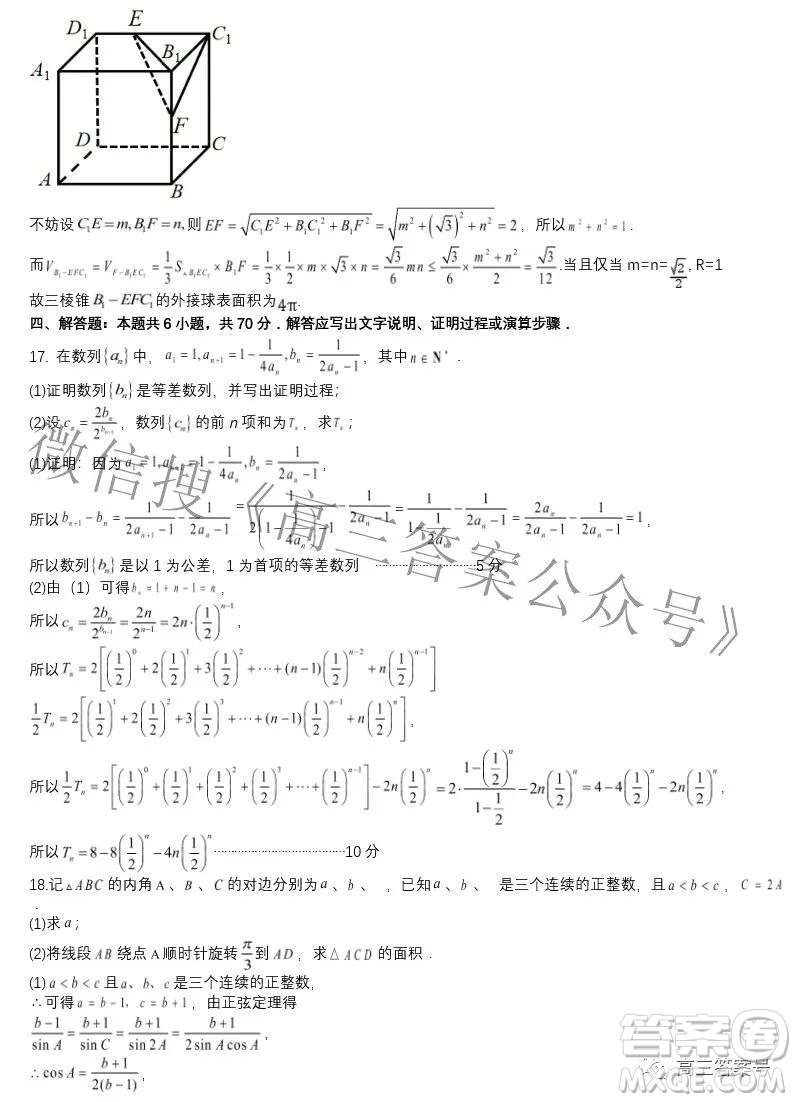 D₁ E C₁
A₁ B₁
F
D C
A B
不妨设 C₁E=m, B₁F=n, 则 EF=√(C₁E²+B₁C₁²+B₁F²)=√(m²+(√3)²+n²)=2，所以 m²+n²=1.
而 V_{B₁-EFC₁}=V_{F-B₁EC₁}=1/3 S_{△B₁EC₁}×B₁F=1/3×1/2×m×√3×n=√3/6 mn≤√3/6×(m²+n²)/2=√3/12.当且仅当 m=n=√2/2, R=1
故三棱锥 B₁-EFC₁的外接球表面积为4π.
四、解答题：本题共 6 小题，共 70 分．解答应写出文字说明、证明过程或演算步骤．
17. 在数列{aₙ}中，a₁=1, aₙ₊₁=1-1/(4aₙ), bₙ=1/(2aₙ-1)，其中 n∈N*．
(1)证明数列{bₙ}是等差数列，并写出证明过程；
(2)设 cₙ=2bₙ/2^{b_{n-1}}，数列{cₙ}的前 n 项和为Tₙ，求Tₙ；
(1)证明：因为 a₁=1, aₙ₊₁=1-1/(4aₙ), bₙ=1/(2aₙ-1)，
所以 bₙ₊₁-bₙ=1/(2aₙ₊₁-1)-1/(2aₙ-1)=1/(2(1-1/(4aₙ))-1)-1/(2aₙ-1)=1/(1-1/(2aₙ))-1/(2aₙ-1)=2aₙ/(2aₙ-1)-1/(2aₙ-1)=1，
所以数列{bₙ}是以 1 为公差，1 为首项的等差数列 ⋯⋯⋯⋯⋯⋯⋯⋯⋯5 分
(2)由（1）可得 bₙ=1+n-1=n，
所以 cₙ=2bₙ/2^{b_{n-1}}=2n/2^{n-1}=2n·(1/2)^{n-1}，
所以 Tₙ=2[(1/2)⁰+2(1/2)¹+3(1/2)²+⋯+(n-1)(1/2)^{n-2}+n(1/2)^{n-1}]
1/2 Tₙ=2[(1/2)¹+2(1/2)²+3(1/2)³+⋯+(n-1)(1/2)^{n-1}+n(1/2)ⁿ]，
所以 1/2 Tₙ=2[(1/2)⁰+(1/2)¹+(1/2)²+(1/2)³+⋯+(1/2)^{n-1}]-2n(1/2)ⁿ=2·(1-(1/2)ⁿ)/(1-1/2)-2n(1/2)ⁿ=4-4(1/2)ⁿ-2n(1/2)ⁿ，
所以 Tₙ=8-8(1/2)ⁿ-4n(1/2)ⁿ⋯⋯⋯⋯⋯⋯⋯⋯⋯10 分
18.记△ABC 的内角 A 、B 、C 的对边分别为 a 、b 、 ，已知 a 、b 、 是三个连续的正整数，且 a<b<c，C=2A
．
(1)求 a；
(2)将线段 AB 绕点 A 顺时针旋转π/3到 AD，求△ACD 的面积．
(1) a<b<c 且 a、b、c 是三个连续的正整数，
∴可得 a=b-1，c=b+1，由正弦定理得
(b-1)/sin A=(b+1)/sin C=(b+1)/sin 2A=(b+1)/(2sin A cos A)，
∴cos A=(b+1)/(2(b-1))，
微信搜《高三答案公众号》
高三答案号
答案卷
MXQE.COM